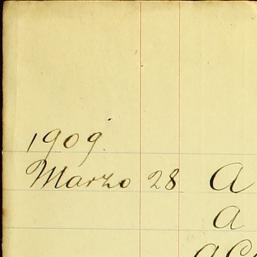 1909.
Marzo 28 A
A